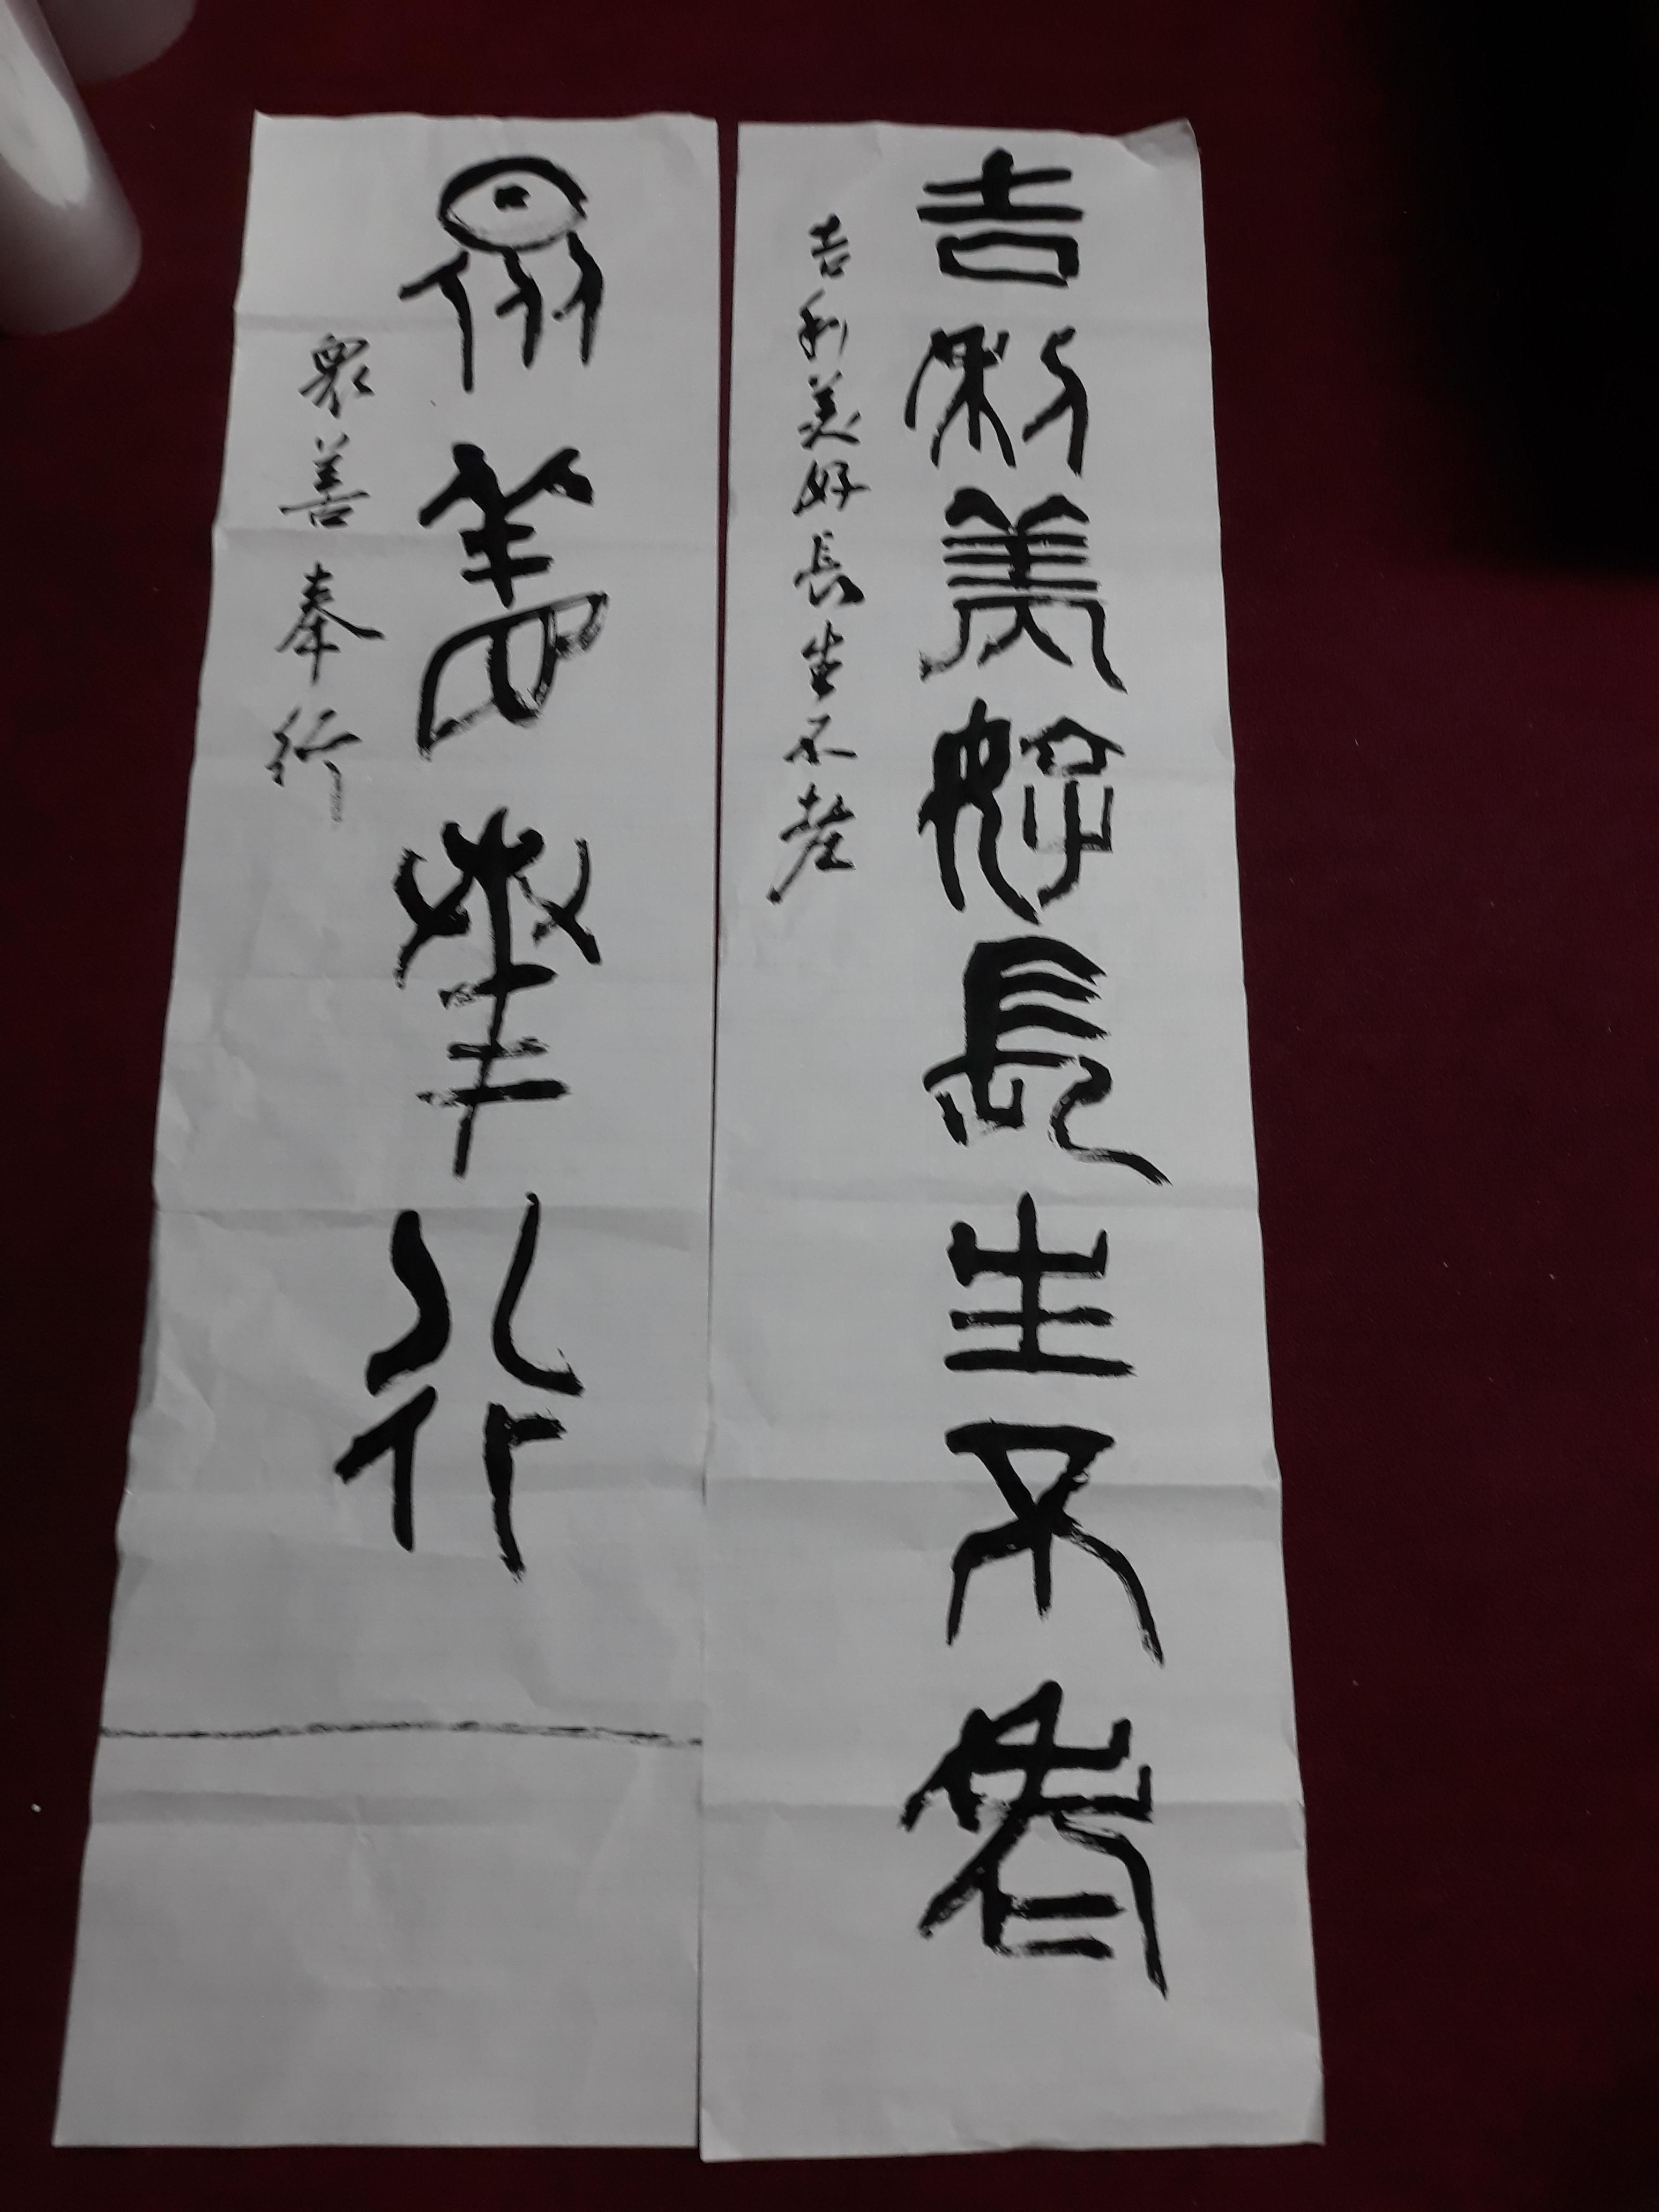 吉利美好長生不
吉利美好長生不
眾善奉行
眾善奉行